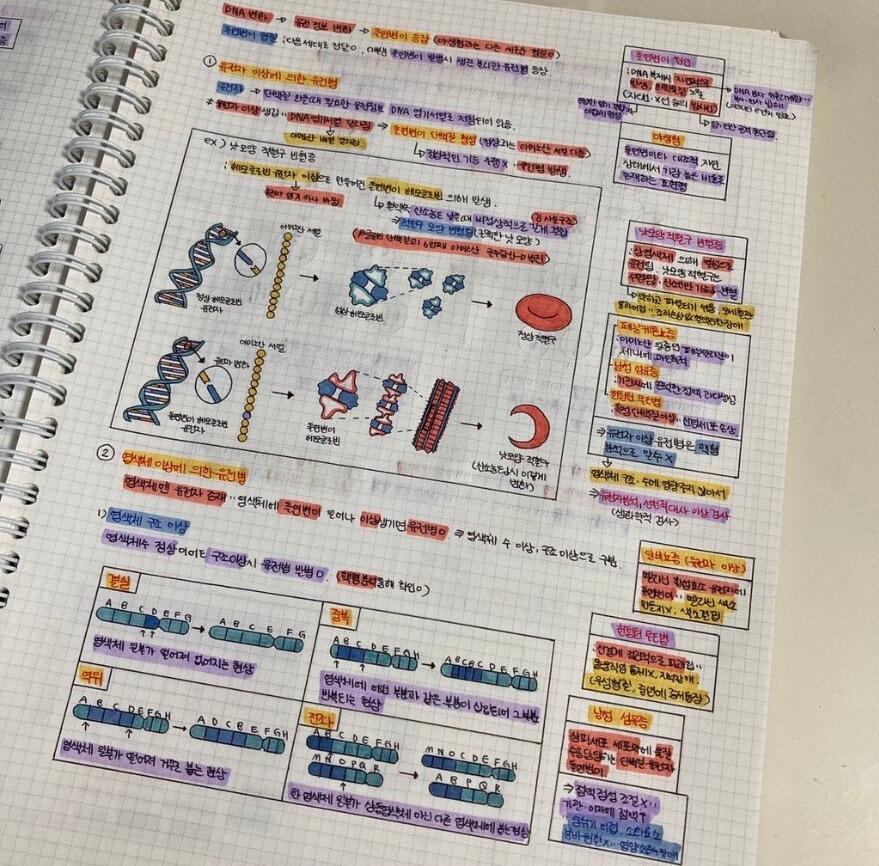 DNA 변화 → 유전 정보 변화 → 돌연변이 등장 (야생형과는 다른 새로운 형질 O)
돌연변이 형질 : 다음세대로 전달 O, 대부분 돌연변이 발생시 생존 불리한 유전병 등장
① 유전자 이상에 의한 유전병
유전자 → 단백질 만들때 필요한 유전정보 DNA 염기서열로 저장되어 있음.
≠ 유전자 이상 생김 → DNA 염기서열 달라짐 → 돌연변이 단백질 형성 (정상과는 아미노산 서열 다름)
아미노산 배열 달라짐
↳ 정상적인 기능 수행 X → 유전병 발생.
ex) 낫모양 적혈구 빈혈증
: 헤모글로빈 유전자 이상으로 만들어진 돌연변이 헤모글로빈 의해 발생.
염기 하나 바뀜
산소농도 낮을때 비정상적으로 길게 결합
⇒ 적혈구 모양 변형 (길쭉한 낫 모양)
아미노산 서열
정상 헤모글로빈
유전자
정상 헤모글로빈
정상 적혈구
아미노산 서열
염기 변화
돌연변이 헤모글로빈
유전자
돌연변이
헤모글로빈
낫모양 적혈구
(산소농도↓시 이렇게
변화)
② 염색체 이상에 의한 유전병
염색체엔 유전자 존재 ∵ 염색체에 돌연변이 일어나 이상생기면 유전병 O ⇒ 염색체 수 이상, 구조 이상으로 구분.
1) 염색체 구조 이상
염색체수 정상이어도 구조이상시 유전병 발병 O (핵형분석 통해 확인 O)
결실
A B C D E F G
A B C E F G
염색체 일부가 떨어져 없어지는 현상
중복
A B C D E F G H
A B C B C D E F G H
염색체에 어떤 부분과 같은 부분이 삽입되어 그 부분
반복되는 현상
역위
A B C D E F G H
A D C B E F G H
염색체 일부가 떨어져 거꾸로 붙는 현상
전좌
A B C D E F G H
M N O P Q R
M N O C D E F G H
A B P Q R
한 염색체 일부가 상동염색체 아닌 다른 염색체에 붙는 현상
돌연변이 원인
: DNA 복제시 자연적으로
발생, 화학물질 노출
(자외선·X선 등의 방사선)
야생형
돌연변이와 대조적, 자연
상태에서 가장 높은 비율로
존재하는 표현형
낫모양 적혈구 빈혈증
: 상염색체 의해 열성으로
유전됨. 낫모양 적혈구는
수명짧, 산소운반 기능↓ → 빈혈
페닐케톤뇨증
: 아미노산 일종인 페닐알라닌이
체내에 과다축적
낭성 섬유증
: 기관지에 끈적한 점액 과다생성
헌팅턴 무도병
: 독성 단백질 이상 → 신경세포 손상
⇒ 유전자 이상 유전병은 핵형
분석으로 알수 X
염색체 구조·수에 영향주지 않아서
⇒ 유전자분석, 선천적 대사 이상 검사
(생화학적 검사)
알비노증 (유전자 이상)
멜라닌 합성효소 유전자에
돌연변이 ∴ 멜라닌 색소
만들지 X, 색소결핍
헌팅턴 무도병
: 신경계 점진적으로 파괴됨 ∴
움직임 통제 X, 지적장애
낭성 섬유증
상피세포 세포막에 물질
수송 담당하는 단백질 유전자
돌연변이
⇒ 점액 점성 조절 X ∴
기관·이자에 점액↑